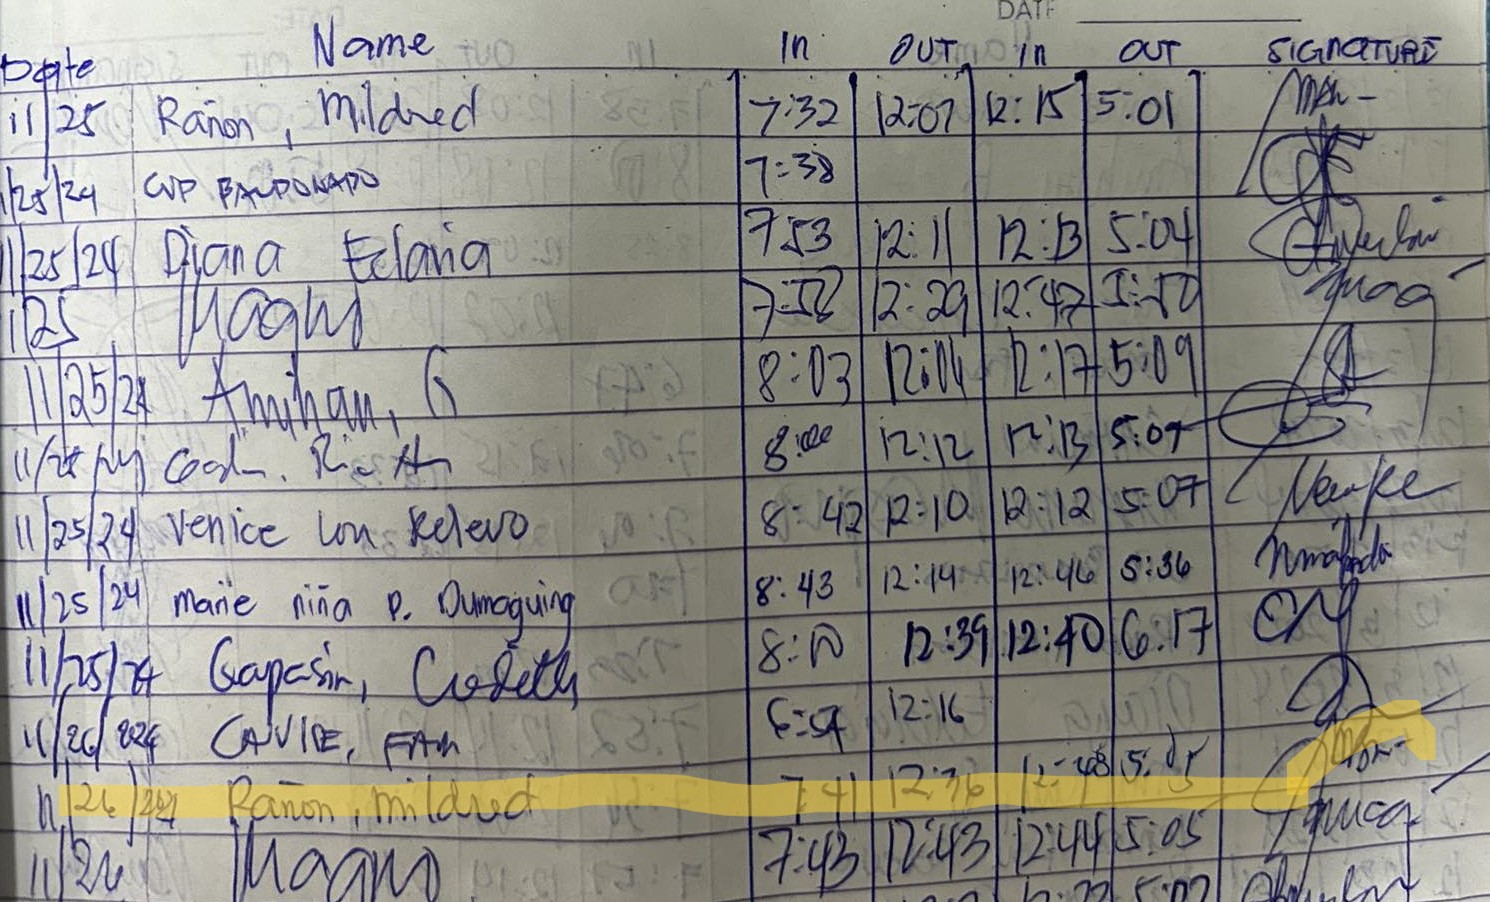 DATE
Date Name In OUT In OUT SIGNATURE
11/25 Rañon, Mildred 7:32 12:07 12:15 5:01
/25/24 CVP BALDONADO 7:38
11/25/24 Diana 7:53 12:11 12:13 5:04
1/25 Magno 7:58 12:29 12:47 5:50
11/25/24 Amihan, G 8:03 12:04 12:17 5:09
8:00 12:12 12:13 5:07
11/25/24 Venice Lou Relevo 8:42 12:10 12:12 5:07
11/25/24 marie niña p. Dumaguing 8:43 12:14 12:46 5:36
11/25/24 Gapasin, 8:10 12:39 12:40 6:17
11/26/2024 6:54 12:16
11/26/24 Rañon, mildred 7:41 12:36 12:48 5:05
11/26 Magno 7:43 12:43 12:44 5:05
5:07